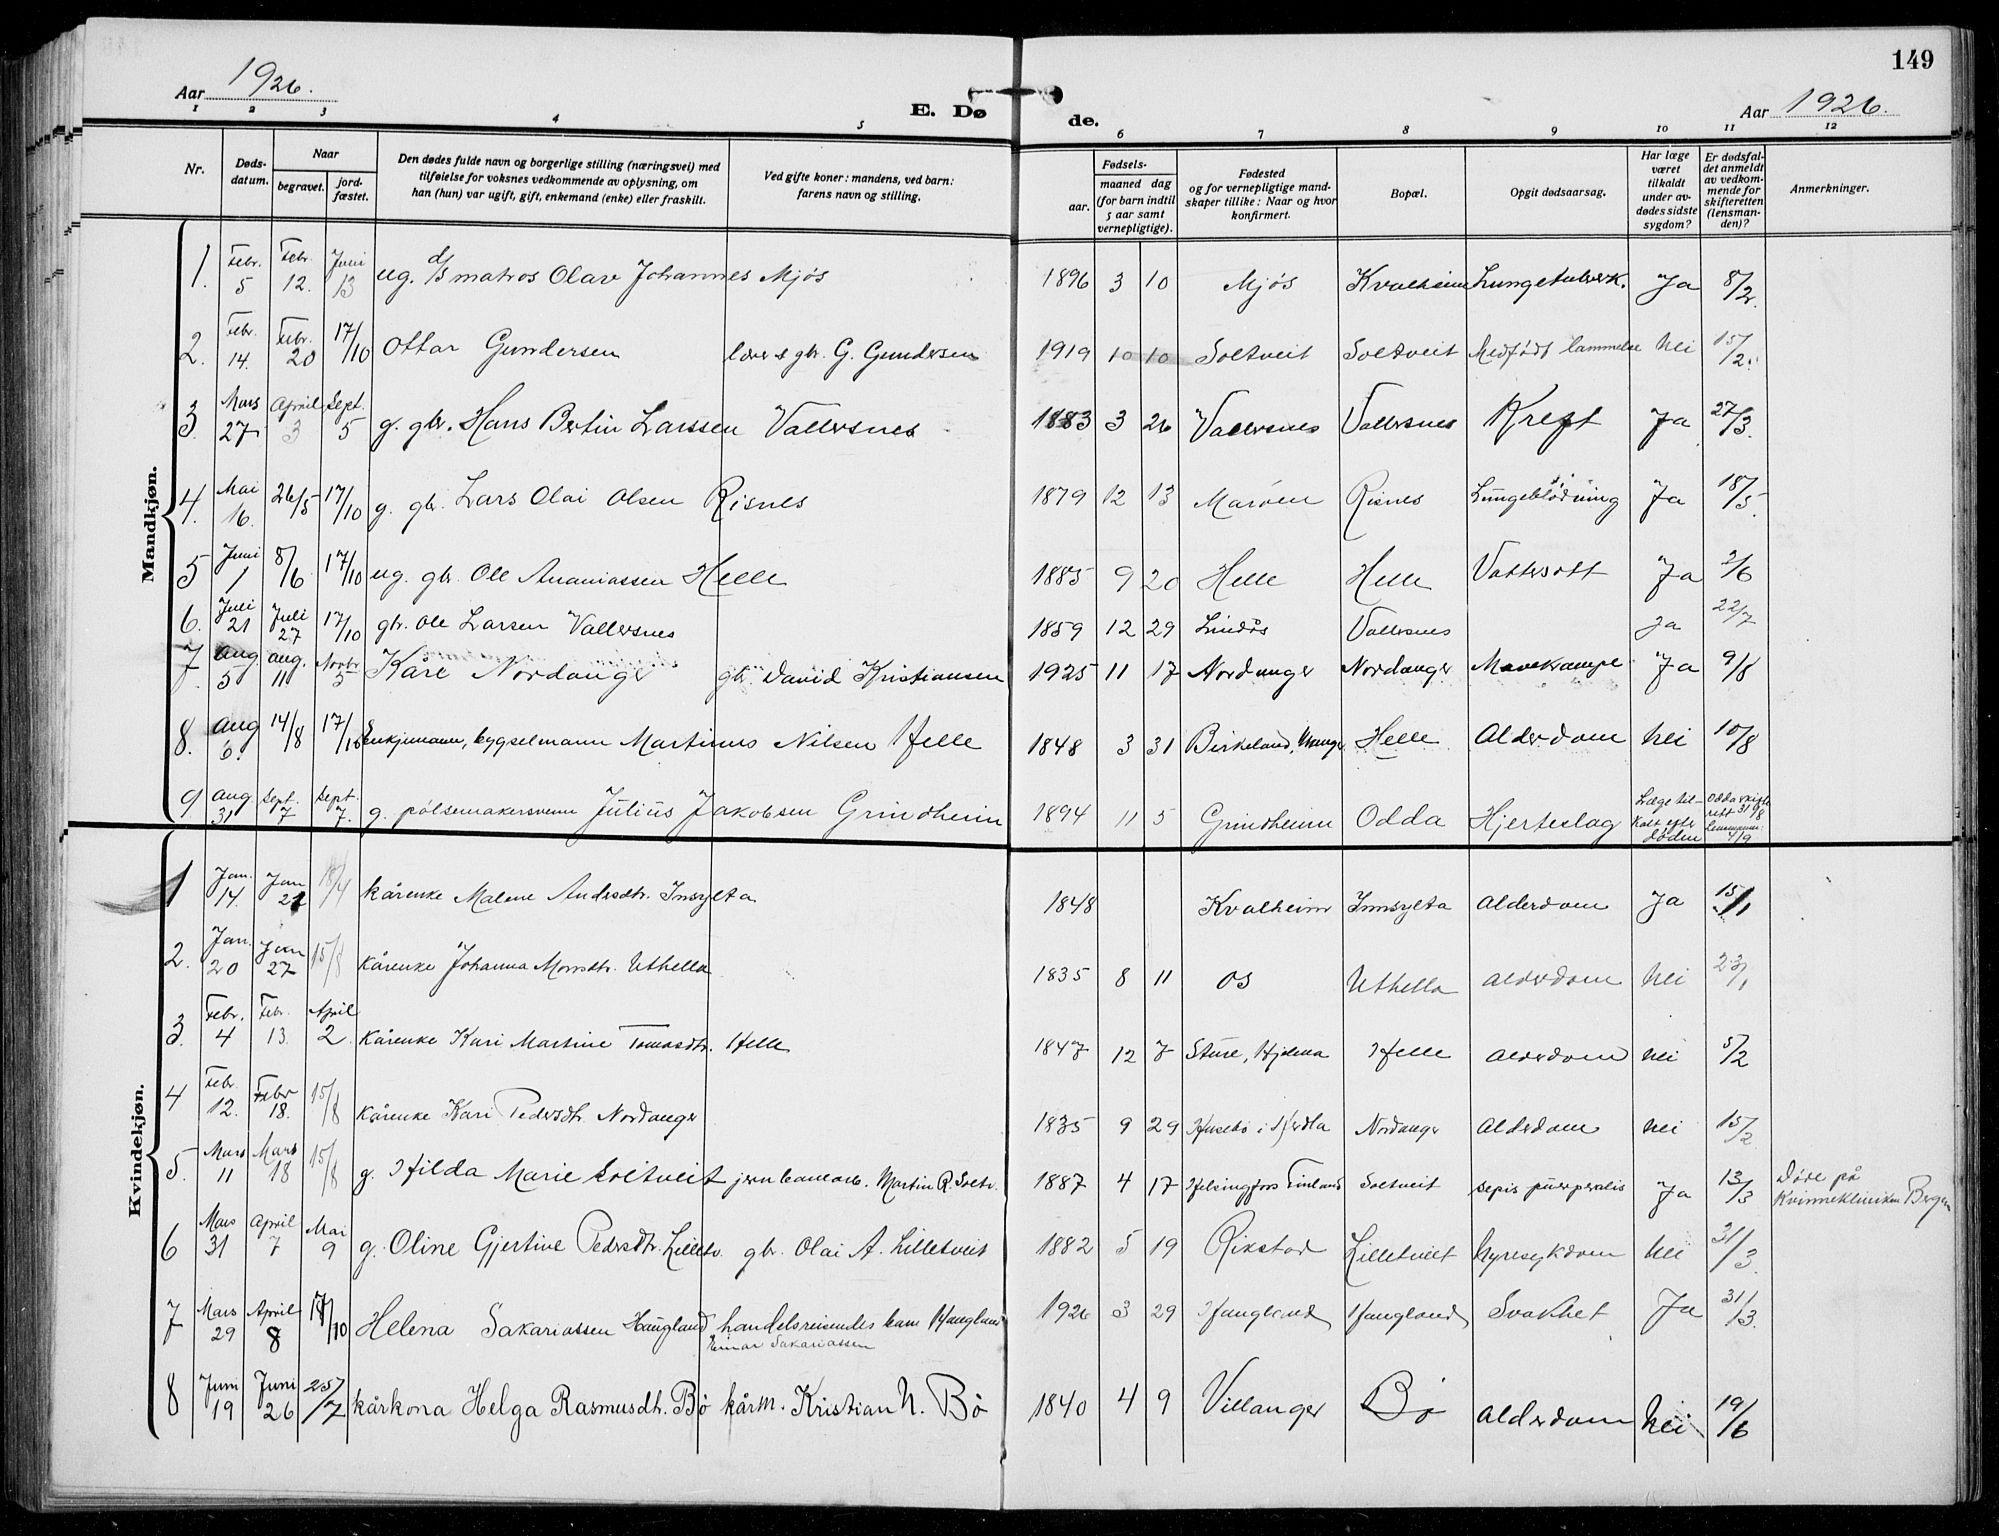 149
Aar 1926.
E. Døde.
Aar 1926.
1 2 3 4 5 6 7 8 9 10 11 12
Nr.
Døds-datum.
Naar
begravet.
jord-fæstet.
Den dødes fulde navn og borgerlige stilling (næringsvei) med
tilføielse for voksnes vedkommende av oplysning, om
han (hun) var ugift, gift, enkemand (enke) eller fraskilt.
Ved gifte koner: mandens, ved barn:
farens navn og stilling.
Fødsels-
aar.
maaned dag
(for barn indtil
5 aar samt
vernepligtige).
Fødested
og for vernepligtige mand-
skaper tillike: Naar og hvor
konfirmert.
Bopæl.
Opgit dødsaarsag.
Har læge
været
tilkaldt
under av-
dødes sidste
sygdom?
Er dødsfal-
det anmeldt
av vedkom-
mende for
skifteretten
(lensman-
den)?
Anmerkninger.
Mandkjøn.
1. Febr. 5 Febr. 12. Juni 13 ug. d/s matros Olav Johannes Mjøs 1896 3 10 Mjøs Kvalheim Lungetuberk. Ja 8/2.
2. Febr. 14. Febr. 20 17/10 Ottar Gundersen lærer & gbr. G. Gundersen 1919 10 10 Soltveit Soltveit Medfødt lammelse Nei 15/2.
3. Mars 27 April 3 Sept. 5 g. gbr. Hans Bertin Larssen Vallersnes 1883 3 26 Vallersnes Vallersnes Kreft Ja 27/3.
4. Mai 16. 26/5 17/10 g. gbr. Lars Olai Olsen Risnes 1879 12 13 Marøen Risnes Lungeblødning Ja 18/5.
5 Juni 1 8/6 17/10 ug. gbr. Ole Ananiassen Helle 1885 9 20 Helle Helle Vattersott Ja 2/6
6. Juli 21 Juli 27 17/10 gbr. Ole Larsen Vallersnes 1859 12 29 Lindås Vallersnes Ja 22/7
7 Aug 5 Aug. 11 Novbr 5 Kåre Nordanger gbr. David Kristiansen 1925 11 17 Nordanger Nordanger Mavekrampe Ja 9/8
8. Aug 6. 14/8 17/10 Enkjemann, bygselmann Martinus Nilsen Helle 1848 3 31 Birkeland, Manger Helle Alderdom Nei 10/8
9 Aug 31 Sept. 7 Sept. 7. g. pølsemakersvenn Julius Jakobsen Grindheim 1894 11 5 Grindheim Odda Hjerteslag Læge til- kalt efter døden Odda skifte rett 31/8 Lensmann: 4/9
Kvindekjøn.
1 Jan. 14. Jan 22 18/4 kårenke Malene Andersdtr. Insylta 1848 Kvalheim Innsylta Alderdom Ja 15/1
2. Jan. 20 Jan 27 15/8 Kårenke Johanna Monsdtr. Uthella 1835 8 11 Os Uthella Alderdom Nei 23/1
3. Febr. 4 Febr. 13. April 2 Kårenke Kari Martine Tomasdtr. Helle 1847 12 7 Sture, Hjelma Helle Alderdom Nei 5/2
4 Febr. 12. Febr 18. 15/8 Kårenke Kari Pedersdtr Nordanger 1835 9 29 Husebø i Herdla Nordanger Alderdom Nei 15/2
5. Mars 11 Mars 18 15/8 g. Hilda Marie Soltveit jernbanearb. Martin R. Soltv. 1887 4 17 Helsingfors Finland Soltveit Sepis puerperalis Ja 13/3 Døde på Kvinneklinikken Bergen
6 Mars 31 April 7 Mai 9 g. Oline Gjertine Pedersdtr. Lilletv. gbr. Olai A. Lilletveit 1882 5 19 Rikstad Lilletveit Nyresykdom Nei 31/3.
7 Mars 29 April 8 17/10 Helena Sakariassen Haugland handelsreisendes barn Haugland Einar Sakariassen 1926 3 29 Haugland Haugland Svakhet Ja 31/3.
8 Juni 19 Juni 26 25/7 kårkona Helga Rasmusdtr. Bø kårm. Kristian N. Bø 1840 4 9 Villanger Bø Alderdom Nei 19/6